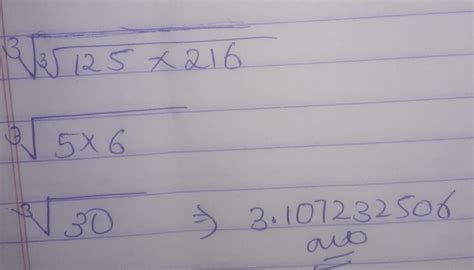 ∛(∛(125 × 216))
∛(5×6)
∛30 ⇒ 3.107232506
ans